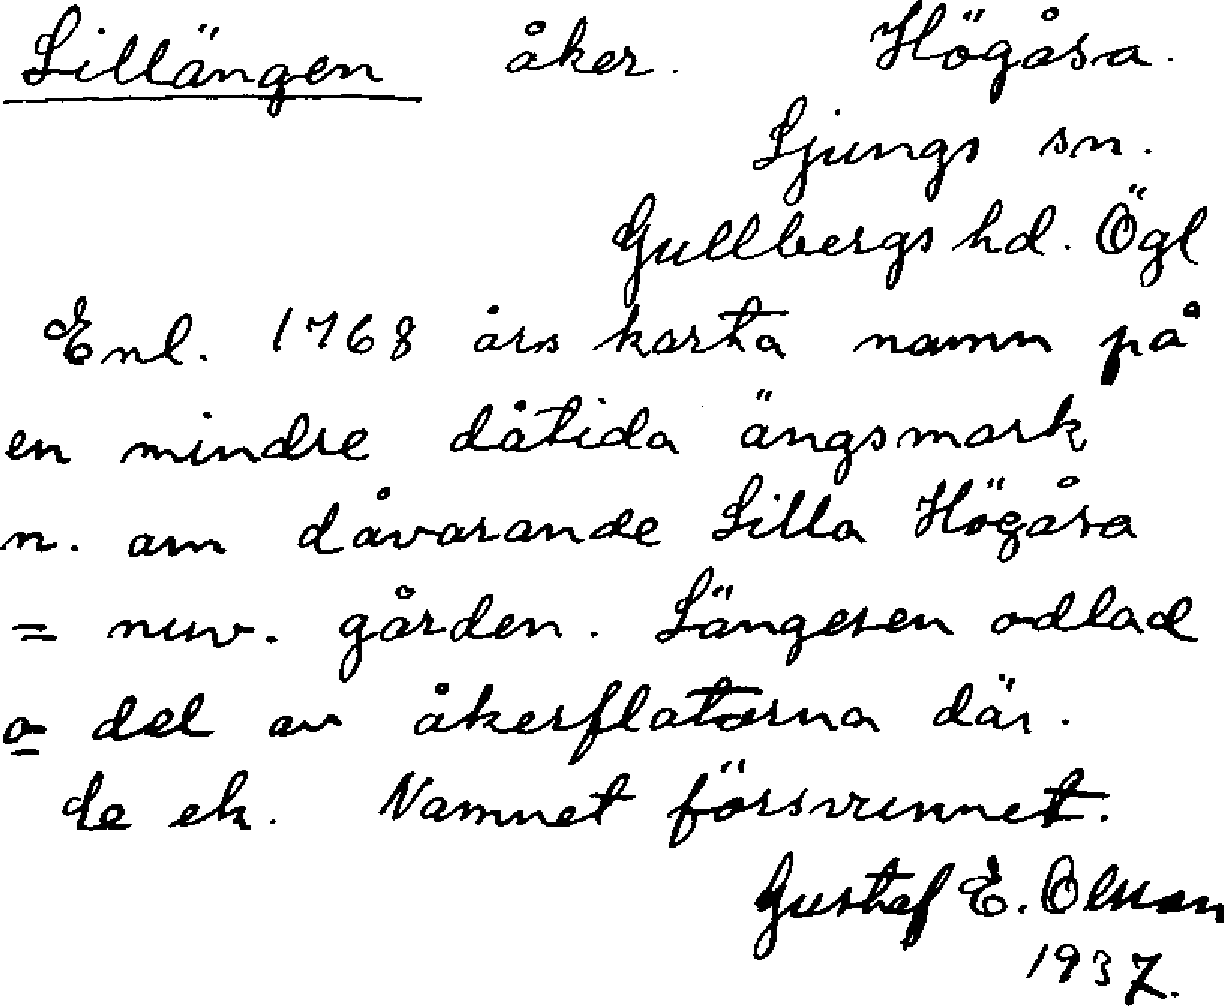 Lillängen åker. Högåsa.
Ljungs sn.
Gullbergs hd. Ögl
Enl. 1768 års karta namn på
en mindre dåtida ängsmark
n. om dåvarande Lilla Högåsa
= nuv. gården. Längesen odlad
o del av åkerflatorna där.
de ek. Namnet försvunnet.
Gustaf E. Olsson
1937.